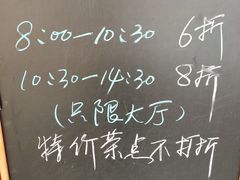 8:00—10:30 6折
10:30—14:30 8折
(只限大厅)
特价菜点不打折